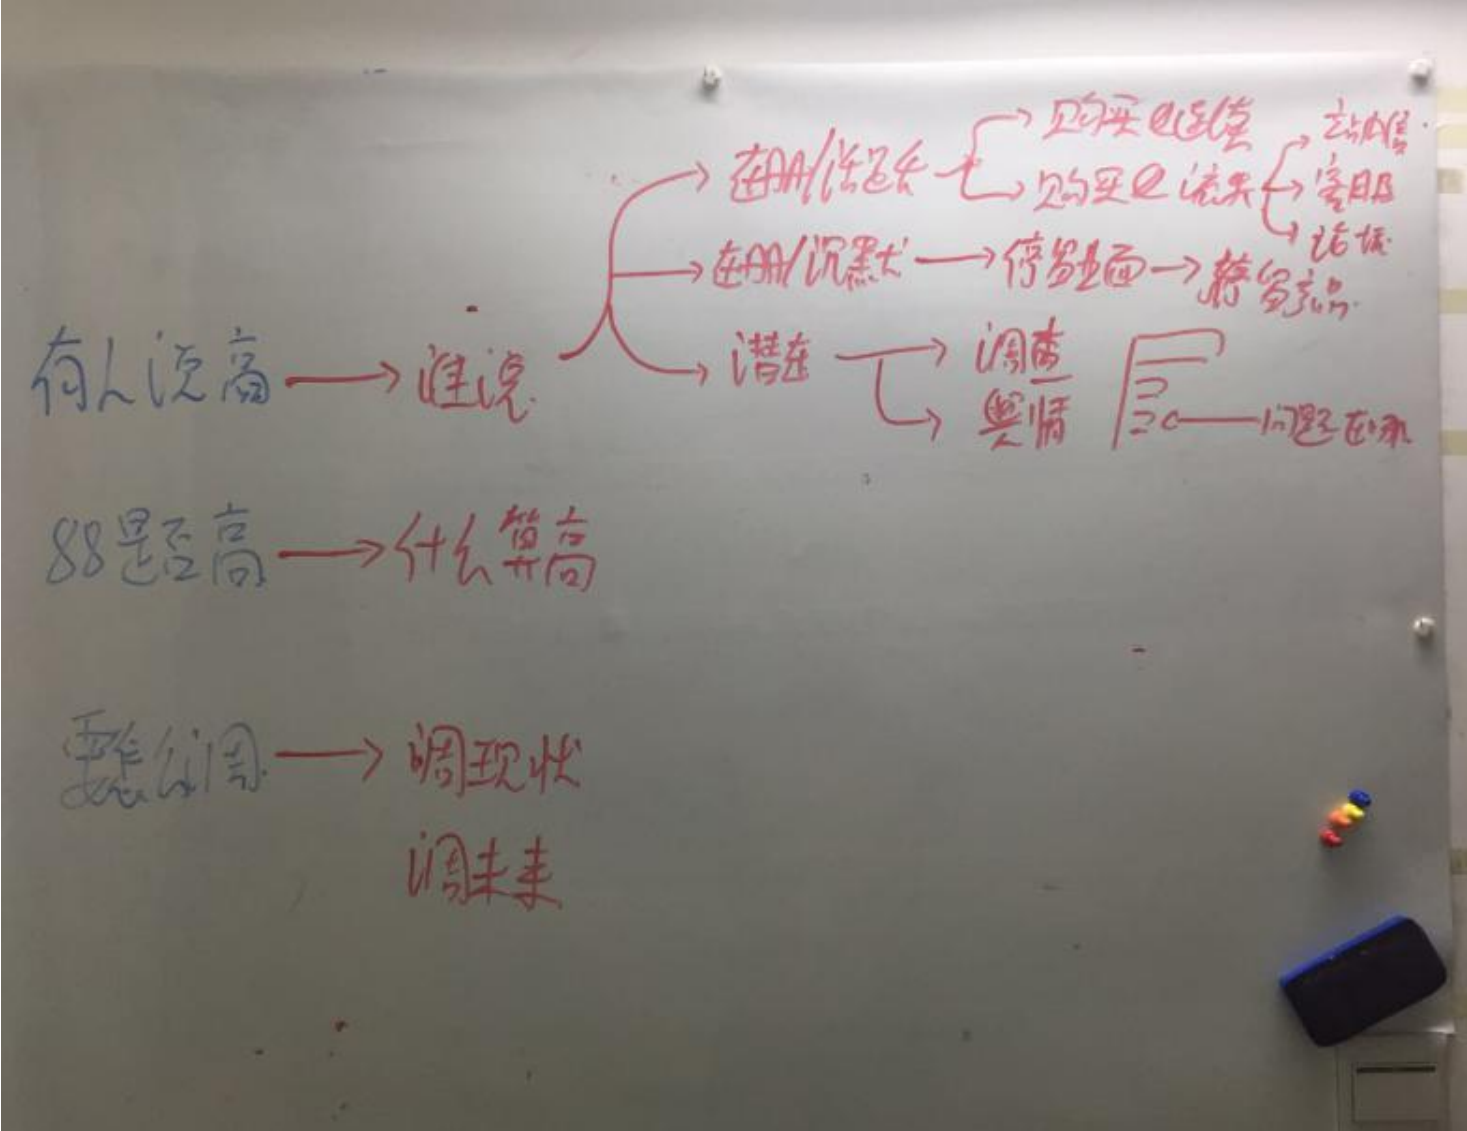 有人说高 → 谁说
在册/活跃 → 购买已充值
购买已流失 → 站内信
客服
论坛
在册/沉默 → 停留页面 → 停留产品
潜在 → 调查
舆情
问题在哪
88是否高 → 什么算高
要怎么调 → 调现状
调未来